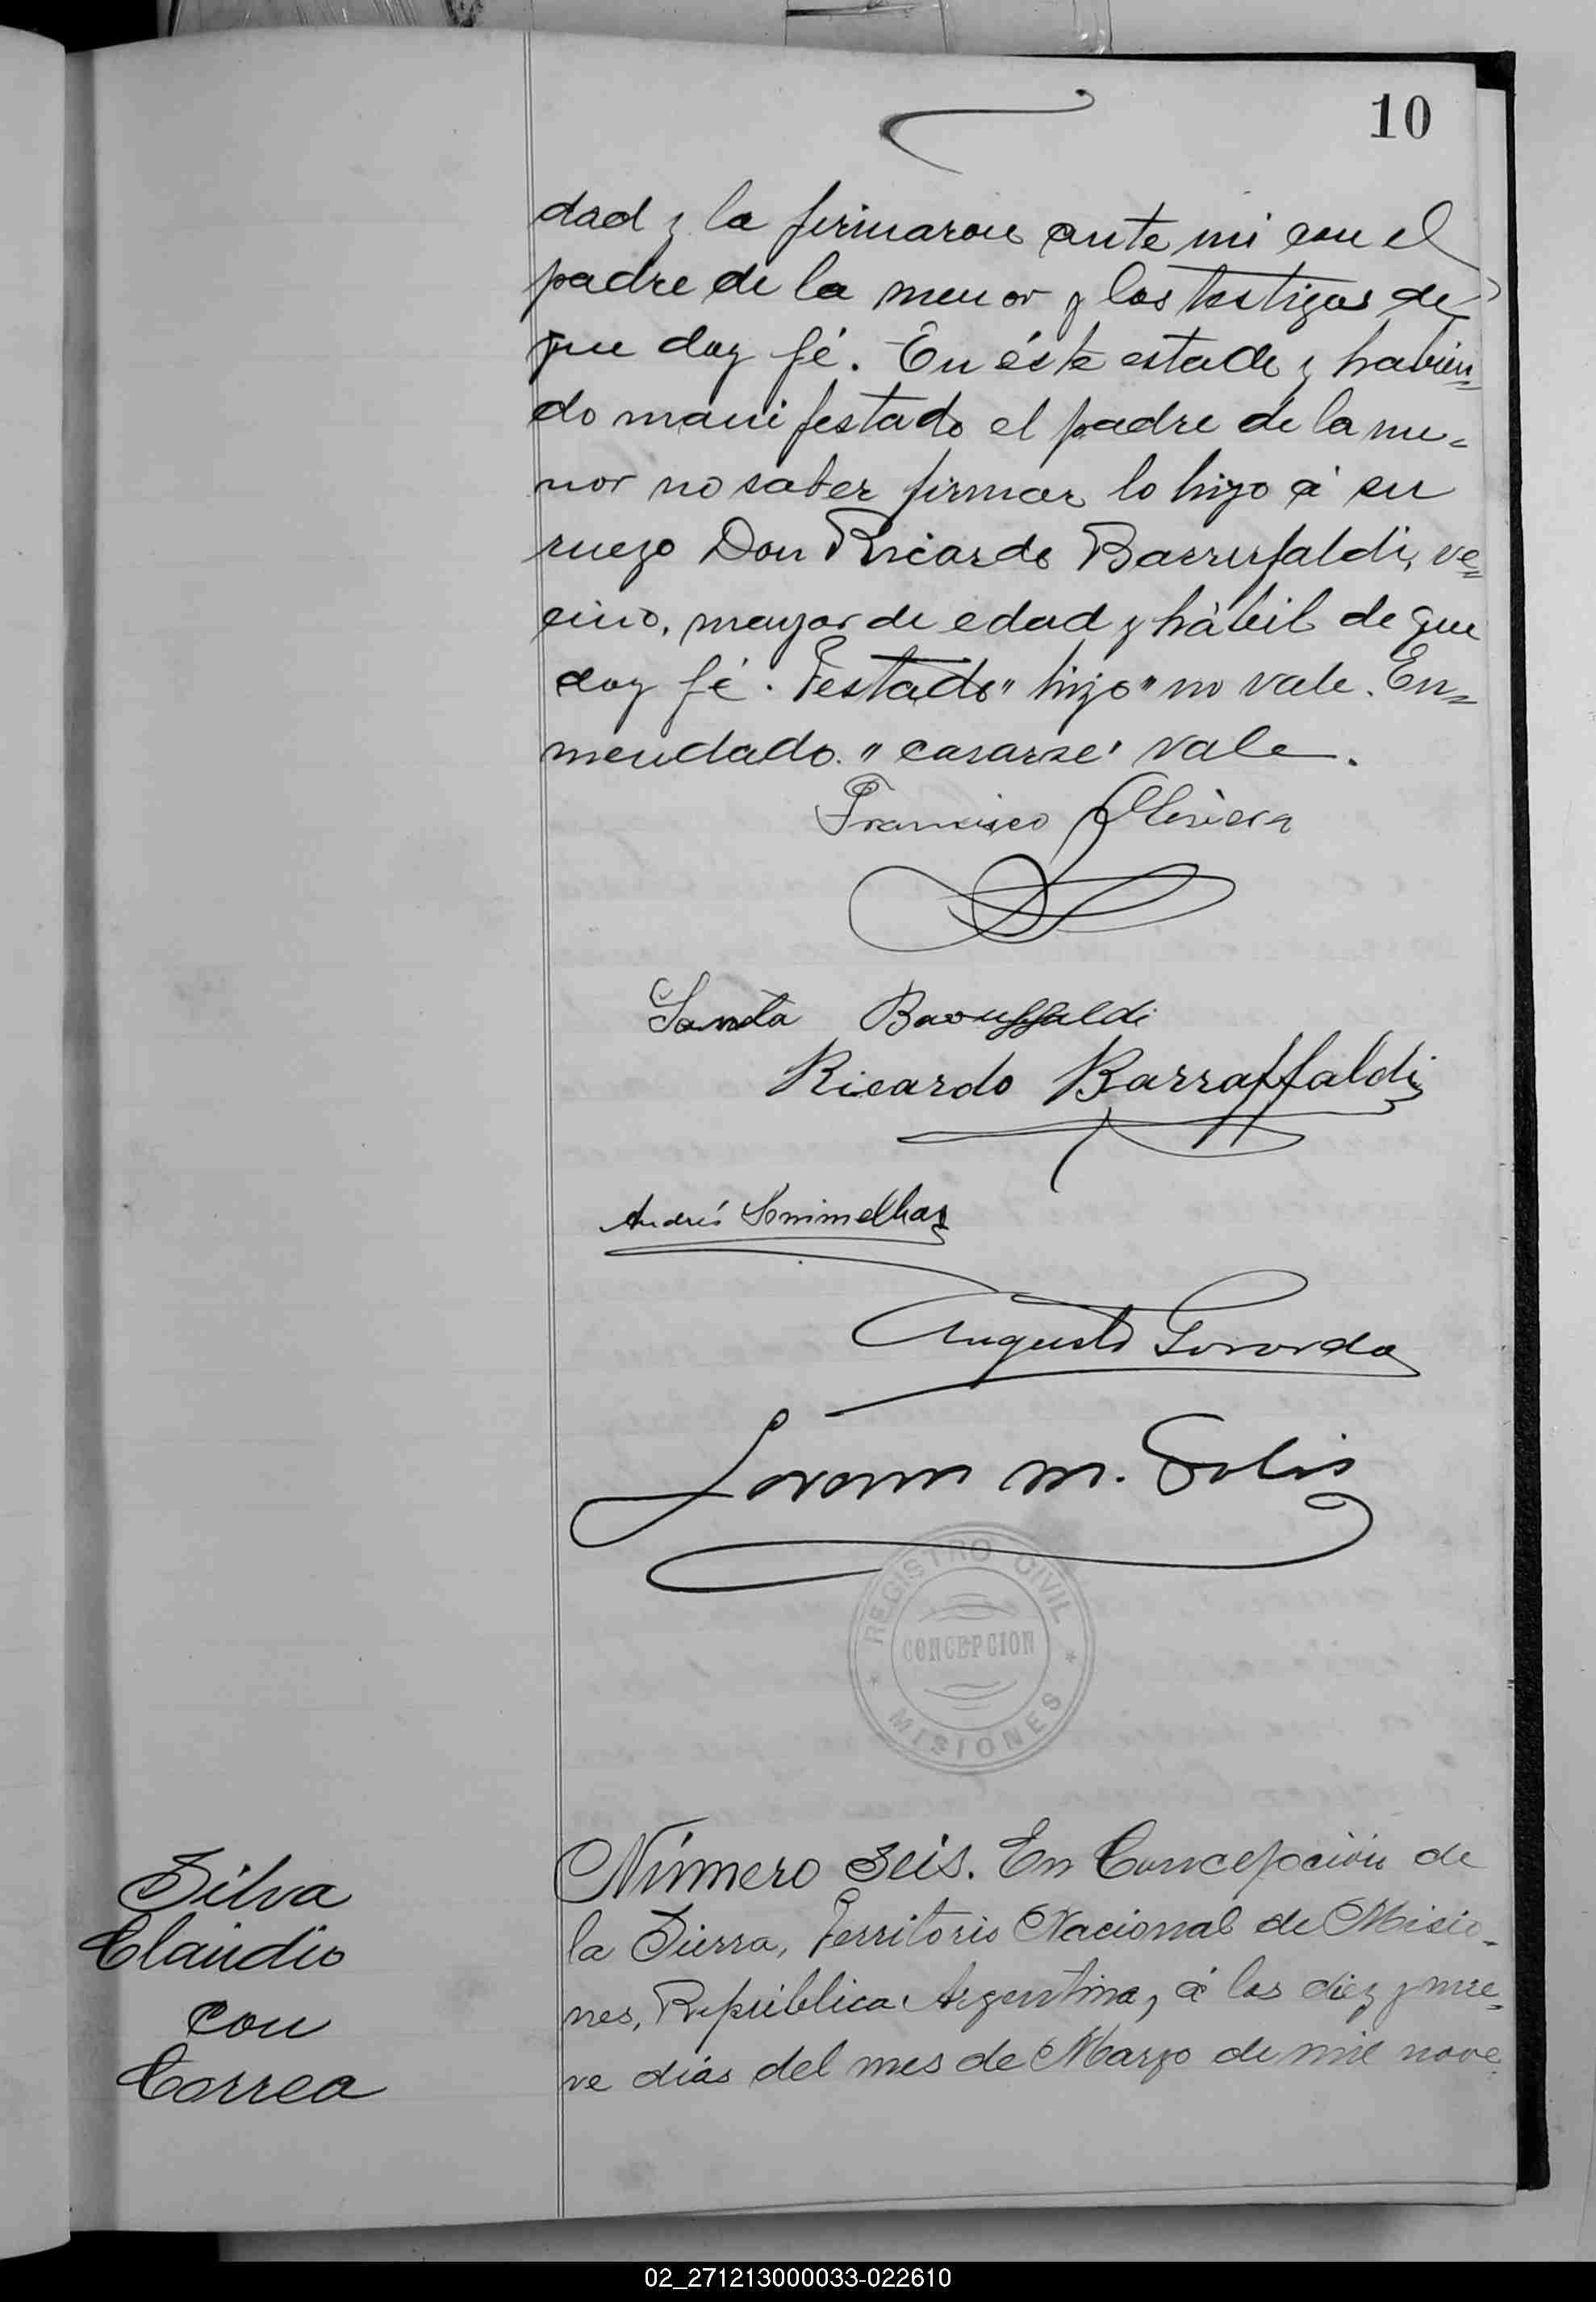 10
dad y la firmaron ante mi con el
padre de la menor y los testigos de
que doy fé. En éste estado y habien=
do manifestado el padre de la me=
nor no saber firmar lo hizo á su
ruego Don Ricardo Barrufaldi, ve=
cino, mayor de edad y hàbil de que
doy fé. Testado "hizo" no vale. En=
mendado "casarse" vale.
Francisco Oliveira
Santa Barouffaldi
Ricardo Barraffaldi
Andrés
Augusto
M. Solis
REGISTRO CIVIL
CONCEPCION
MISIONES
Silva
Claudio
con
Correa
Número seis. En Concepción de
la Sierra, Territorio Nacional de Misio-
nes, República Argentina, á los diez y nue=
ve dias del mes de Marzo de mil nove
02_271213000033-022610